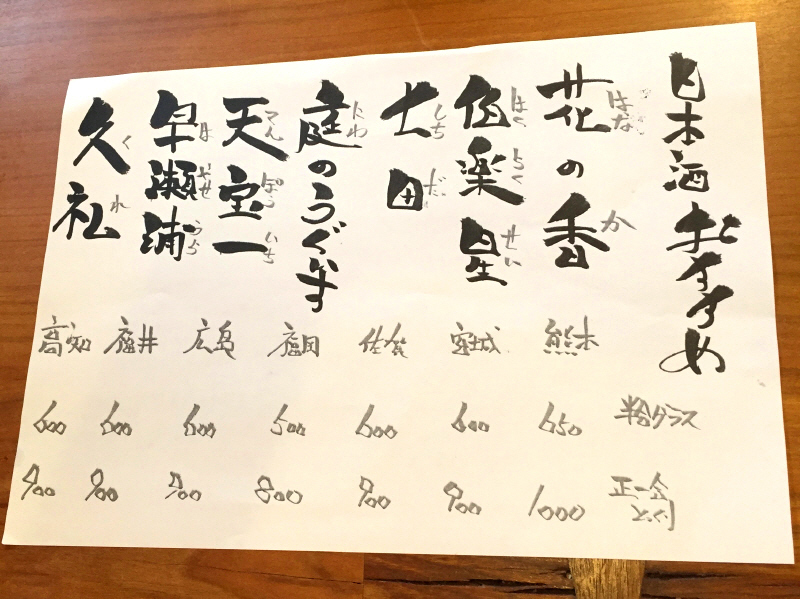 日本酒おすすめ
半合グラス
正一合とっくり
花の香
はなか
熊本
650
1000
伯楽星
はくらくせい
宮城
600
900
七田
しちだ
佐賀
600
900
庭のうぐいす
にわ
福岡
500
800
天宝一
てんぽういち
広島
600
900
早瀬浦
はやせうら
福井
600
900
久礼
くれ
高知
600
900